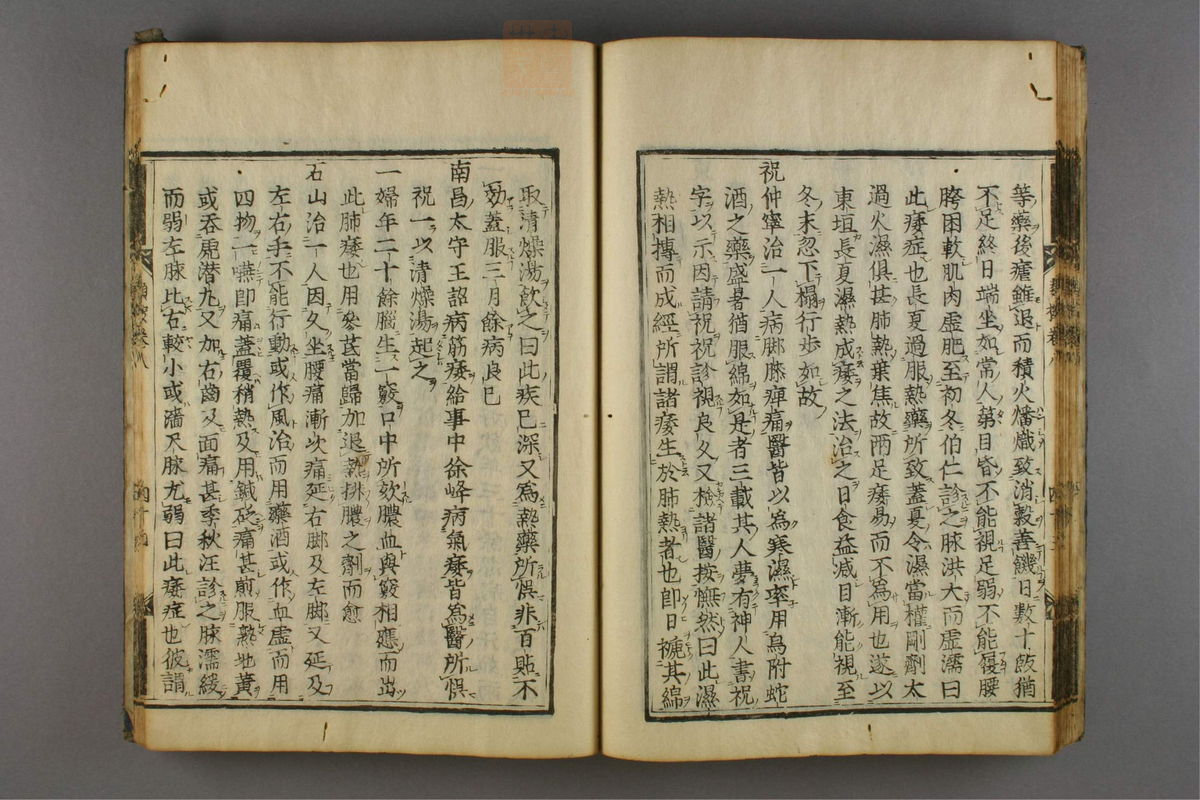 等藥後瘧雖退而積火燔熾致消穀善饑日數十飯猶
不足終日端坐如常人第目昏不能視足弱不能履腰
胯困軟肌肉虛肥至初冬伯仁診之脉洪大而虛濡曰
此痿症也長夏過服熱藥所致蓋夏令濕當權剛劑太
過火濕俱甚肺熱葉焦故兩足痿易而不爲用也遂以
東垣長夏濕熱成痿之法治之日食益减目漸能視至
冬末忽下榻行步如故
祝仲寧治一人病脚膝痺痛醫皆以爲寒濕率用烏附蛇
酒之藥盛暑猶服綿如是者三載其人夢有神人書祝
字以示因請祝祝診視良久又檢諸醫按憮然曰此濕
熱相摶而成經所謂諸痿生於肺熱者也卽日褫其綿
取清燥湯飲之曰此疾已深又爲熱藥所悞非百貼不
効蓋服三月餘病良已
南昌太守王詔病筋痿給事中徐峰病氣痿皆爲醫所悞
祝一以清燥湯起之
一婦年二十餘臈生一竅口中所欬膿血與竅相應而出
此肺痿也用參芪當歸加退熱排膿之劑而愈
石山治一人因久坐腰痛漸次痛延右脚及左脚又延及
左右手不能行動或作風治而用藥酒或作血虛而用
四物一嚥卽痛蓋覆稍熱及用鍼砭痛甚煎服熟地黃
或吞虎潜丸又加右齒及面痛甚季秋汪診之脉濡緩
而弱左脉比右較小或濇尺脉尤弱曰此痿症也彼謂